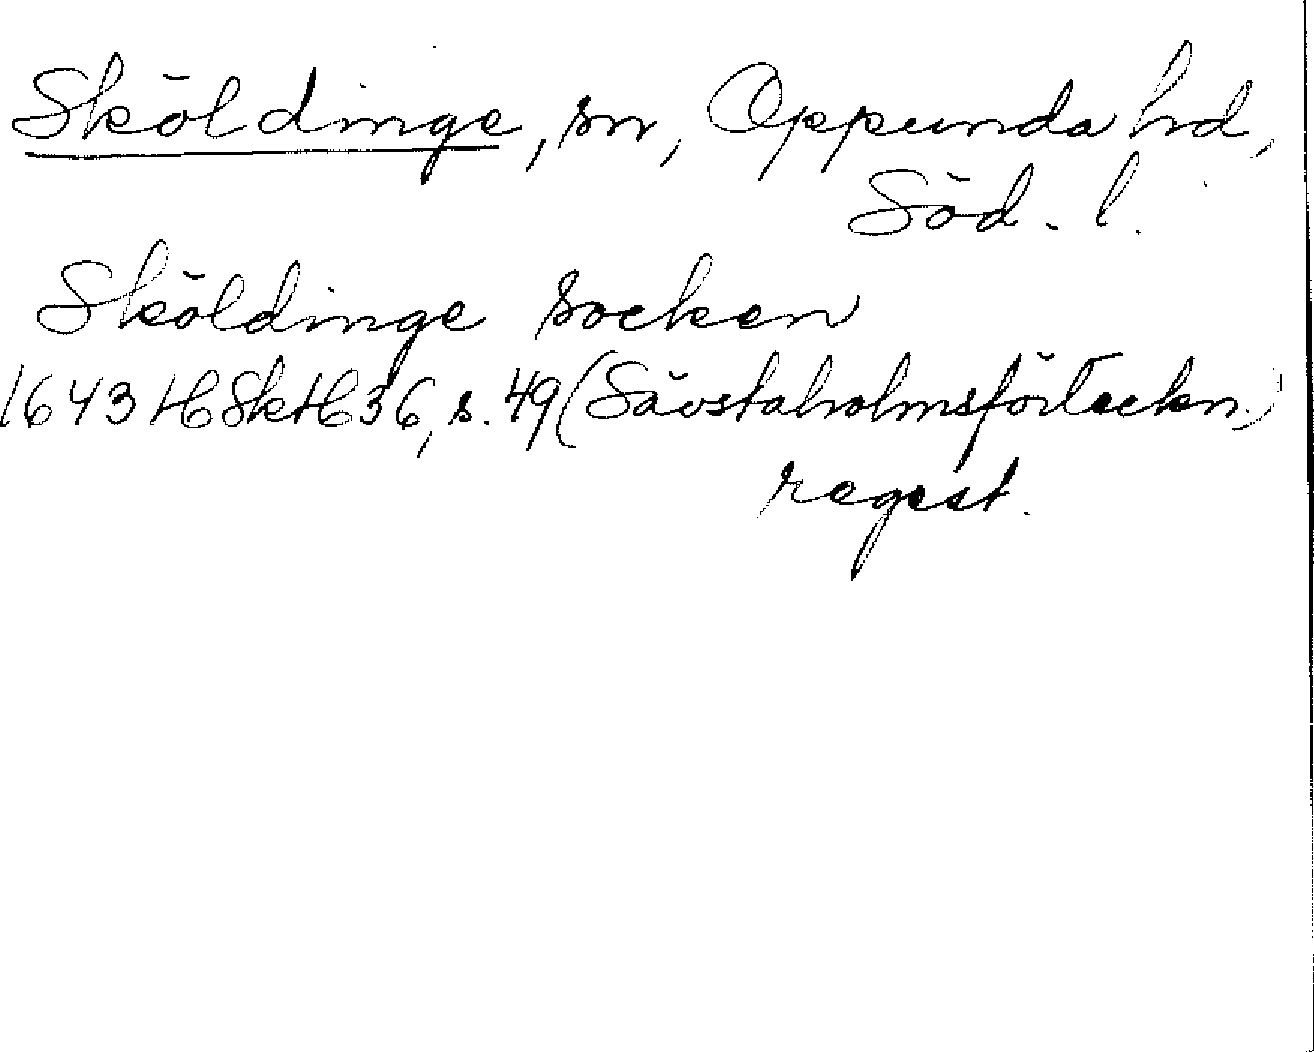 Sköldinge, sn, Oppunda hd,
Söd. l.
Sköldinge socken
1643 HSkH 36, s. 49 (Sävstaholmsförteckn.)
regest.